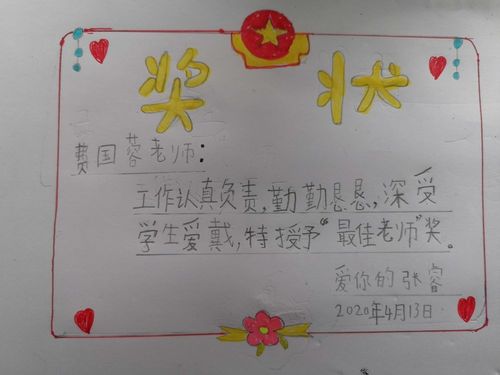 奖状
费国蓉老师：
工作认真负责，勤勤恳恳，深受
学生爱戴，特授予“最佳老师”奖。
爱你的张睿
2020年4月13日